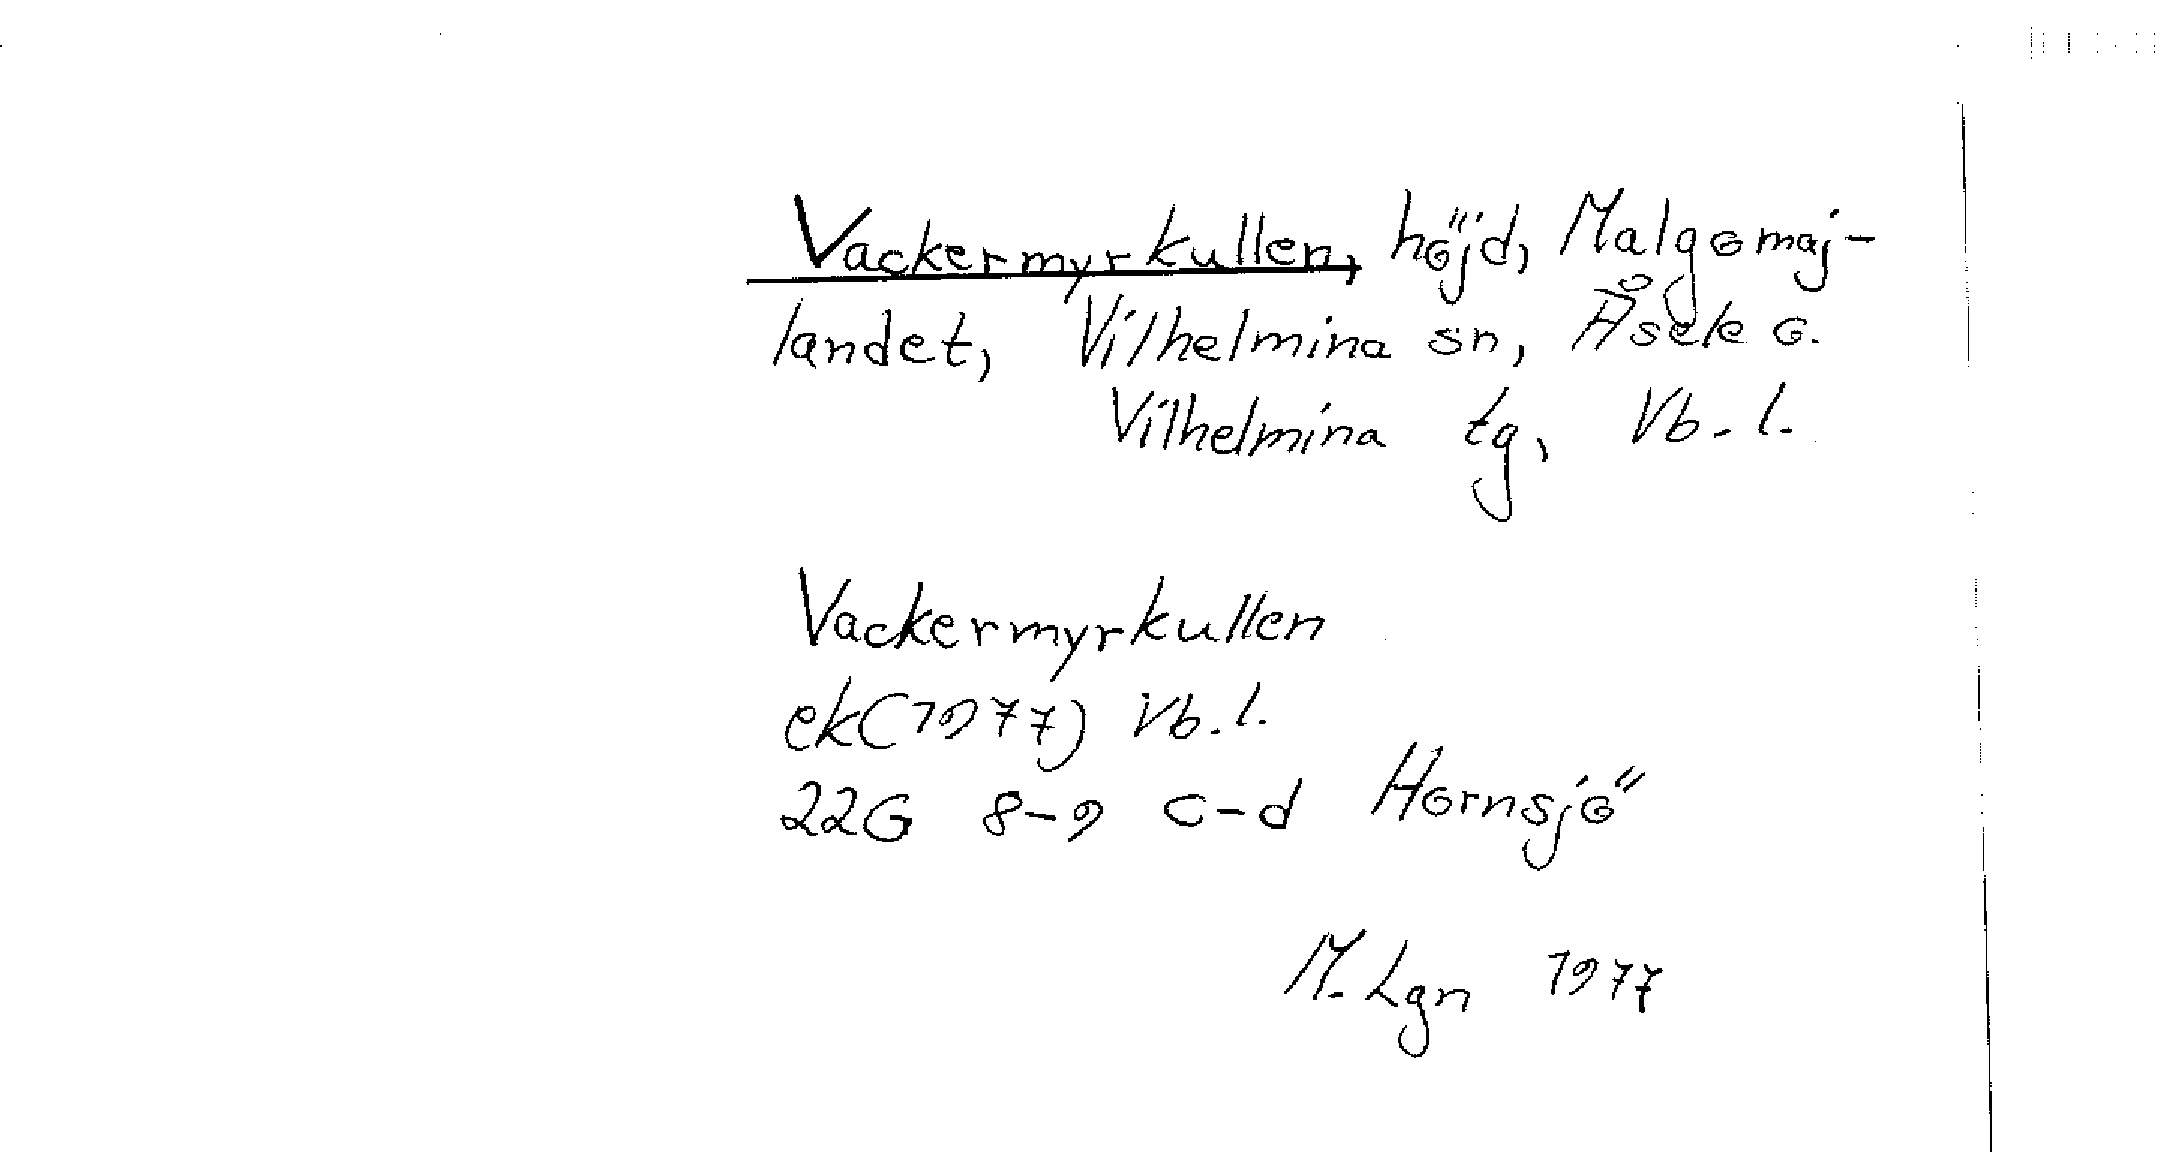 Vackermyrkullen, höjd, Malgomaj-
landet, Vilhelmina sn, Åsele o.
Vilhelmina tg, Vb. l.
Vackermyrkullen
ek(1977) Vb. l.
22G 8-9 c-d Hornsjö
M. Lgn 1977